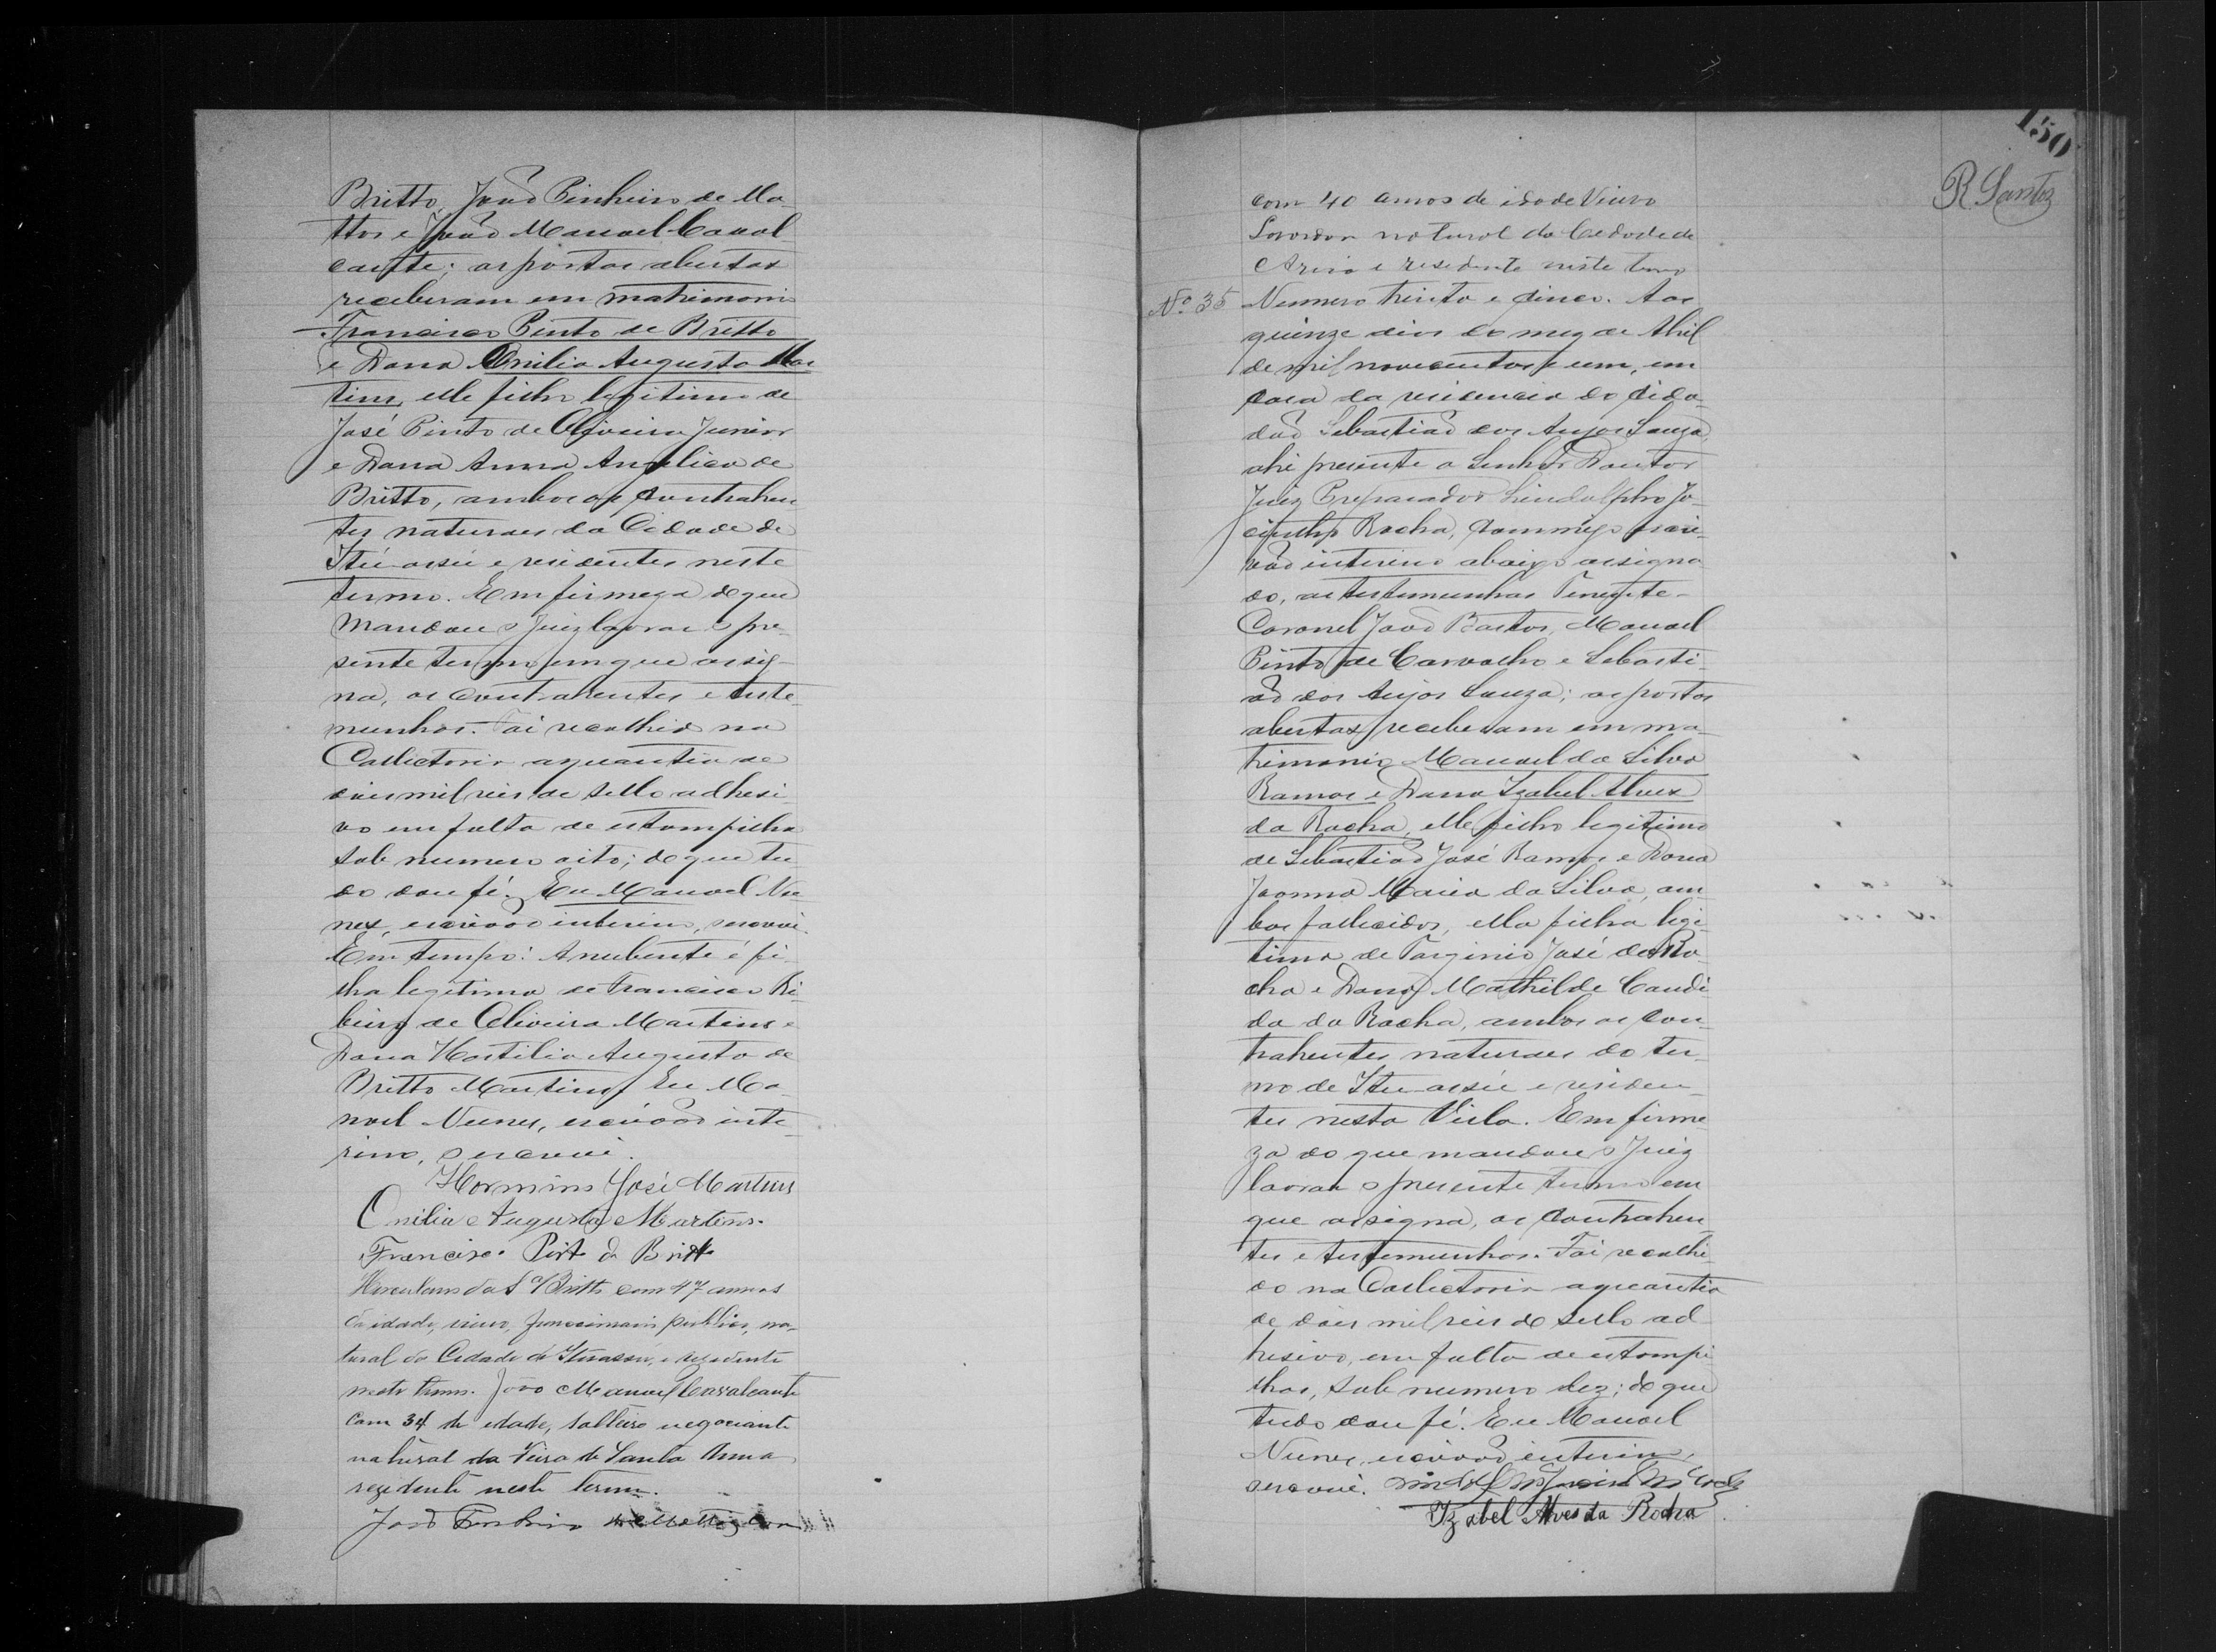 Britto, João Pinheiro de Ma-
ttos e João Manoel Caval
cante; as portas abertas
receberam em matrimonio
Francisco Pinto de Britto
e Dona Onilia Augusta Mar
tins, elle filho legitimo de
José Pinto de Oliveira Junior
e Dona Anna Angelica de
Britto, ambos os contrahen
tes naturaes da Cidade de
Itú-assú e residentes neste
termo. Em firmeza do que
mandou o Juiz lavrar o pre-
sente termo em que assig-
na, os contrahentes e teste-
munhas. Foi recolhido na
Collectoria a quantia de
dois mil reis de sello adhesi-
vo em falta de estampilha
sob numero oito; do que tu
do dou fé. Eu Manoel Nu
nes, escrivão interino, escrevi.
Em tempo: A nubente é fi-
lha legitima de Francisco Ri-
beiro de Oliveira Martins e
Dona Hostilia Augusta de
Britto Martins. Eu Ma-
noel Nunes, escrivão inte-
rino, o escrevi.
Hormino José Martins
Onilia Augusta Martins.
Francisco Pinto de Britto
Herculano da Sª Britto com 47 annos
de idade, viuvo, funccionario publico, na-
tural da Cidade de Ituassú, e rezidente
neste termo. João Manoel Cavalcante
com 34 de edade, solteiro negociante
natural da Feira de Santa Anna
rezidente neste termo.
João Pinheiro de Mattos com
150
R. Santos
com 40 annos de idade Viuvo
Lavrador natural da Cedade de
Areia e residente neste termo
Nº 35 Numero trinta e cinco. Aos
quinze dias do mez de Abril
de mil novecentos e um, em
casa da residencia do cida-
dão Sebastião dos Anjos Souza,
ahi presente o Senhor Doutor
Juiz Preparador Lindolpho Ja-
cintho Rocha, commigo escri-
vão interino abaixo assigna
do, as testemunhas Tenente-
Coronel João Bastos, Manoel
Pinto de Carvalho e Sebasti-
ão dos Anjos Souza; as portas
abertas receberam em ma-
trimonio Manoel da Silva
Ramos e Dona Izabel Alves
da Rocha, elle filho legitimo
de Sebastião José Ramos e Dona
Joanna Maria da Silva, am
bos fallecidos, ella filha legi-
tima de Targinio José da Ro-
cha e Dona Mathilde Candi-
da da Rocha, ambos os con-
trahentes naturaes do ter-
mo de Itu-assú e residen-
tes nesta Villa. Em firme-
za do que mandou o Juiz
lavrar o presente termo em
que assigna, os contrahen-
tes e testemunhas. Foi recolhi-
do na Collectoria a quantia
de dois mil reis de sello ad
hesivo, em falta de estampi
lhas, sob numero dez; do que
tudo dou fé. Eu Manoel
Nunes, escrivão interino,
escrevi.
Izabel Alves da Rocha